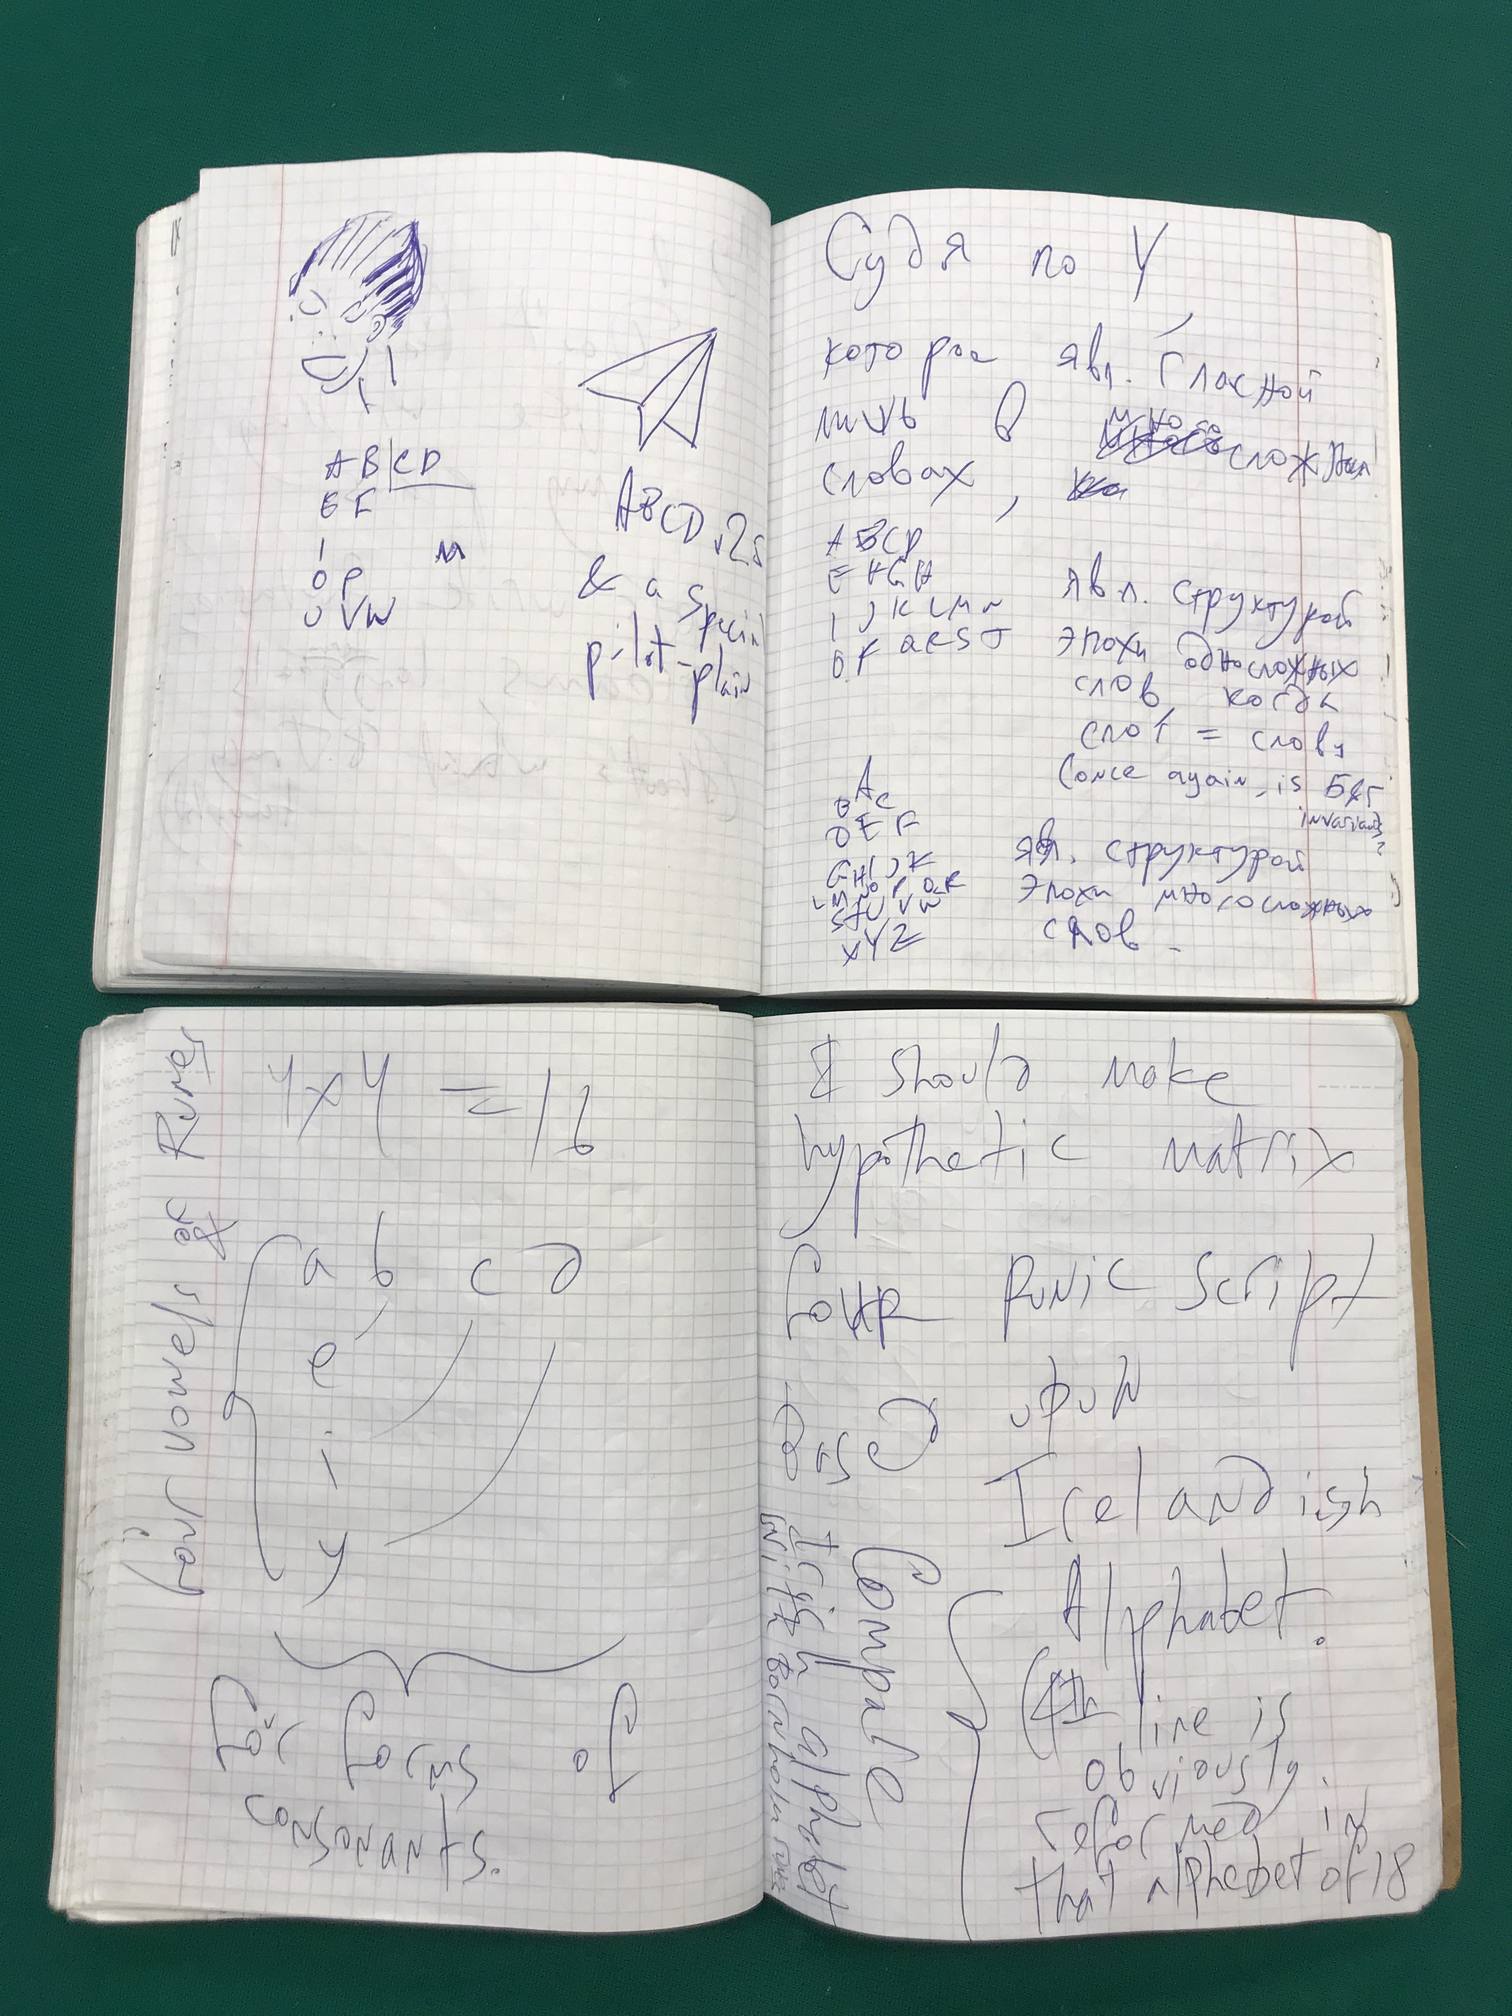 A B C D
E F
I M
O P
U VW
ABCD
& a special
pilot-plain
Судя по Y,
которая явл. гласной
лишь в многосложных
словах,
A B C D
E F G H
I J K L M N
O P Q R S T
явл. структурой
эпохи односложных
слов, когда
слог = слову
(once again, is
invariant?
A
B C
D E F
G H I J K
L M N O P Q R
S T U V W
X Y Z
явл. структурой
эпохи многосложных
слов.
four vowels of Runes
4x4 = 16
a b c d
e
i
y
for forms of
consonants.
I should make
hypothetic matrix
four Runic script
upon
Irelandish
Alphabet.
line is
obviously
reformed in
that alphabet of 18
Compare
Irish alphabet
with Bornholm